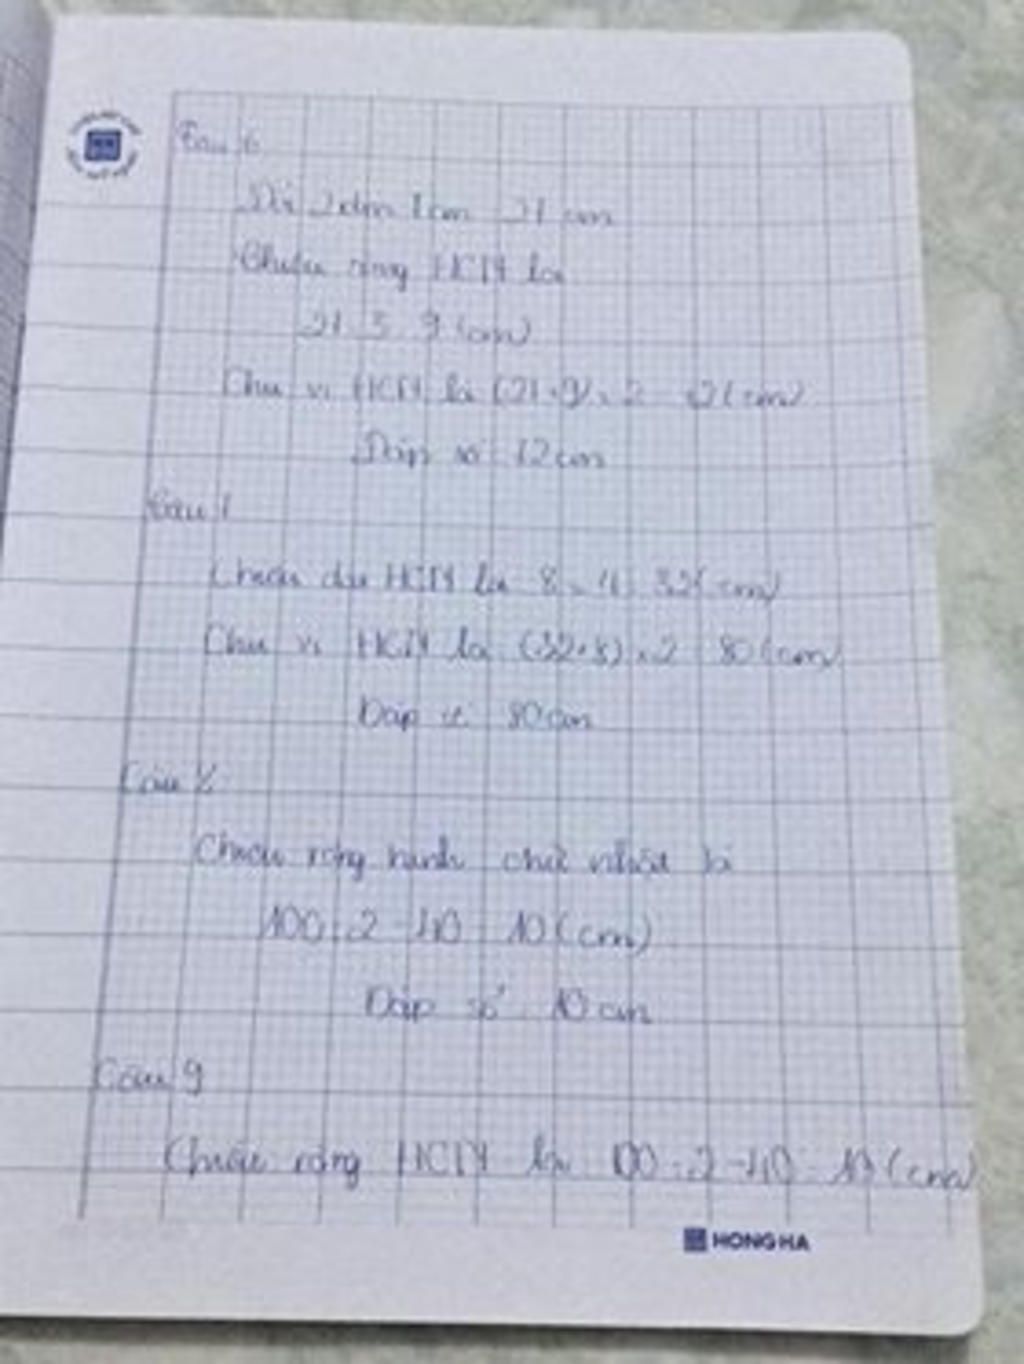 Câu 6
2dm 1cm 21 cm
Chiều rộng HCN là
21 9 (cm)
Chu vi HCN là (21+9) 2 (cm)
Đáp số 12cm
Câu
Chiều dài HCN là 8 x 4 32(cm)
Chu vi HCN là (32+8) x 2 80(cm)
Đáp số 80cm
Câu
Chiều rộng hình chữ nhật là
100:2-40 10(cm)
Đáp số 10cm
Câu 9
Chiều rộng HCN là 100:2-40 10(cm)
HONG HA